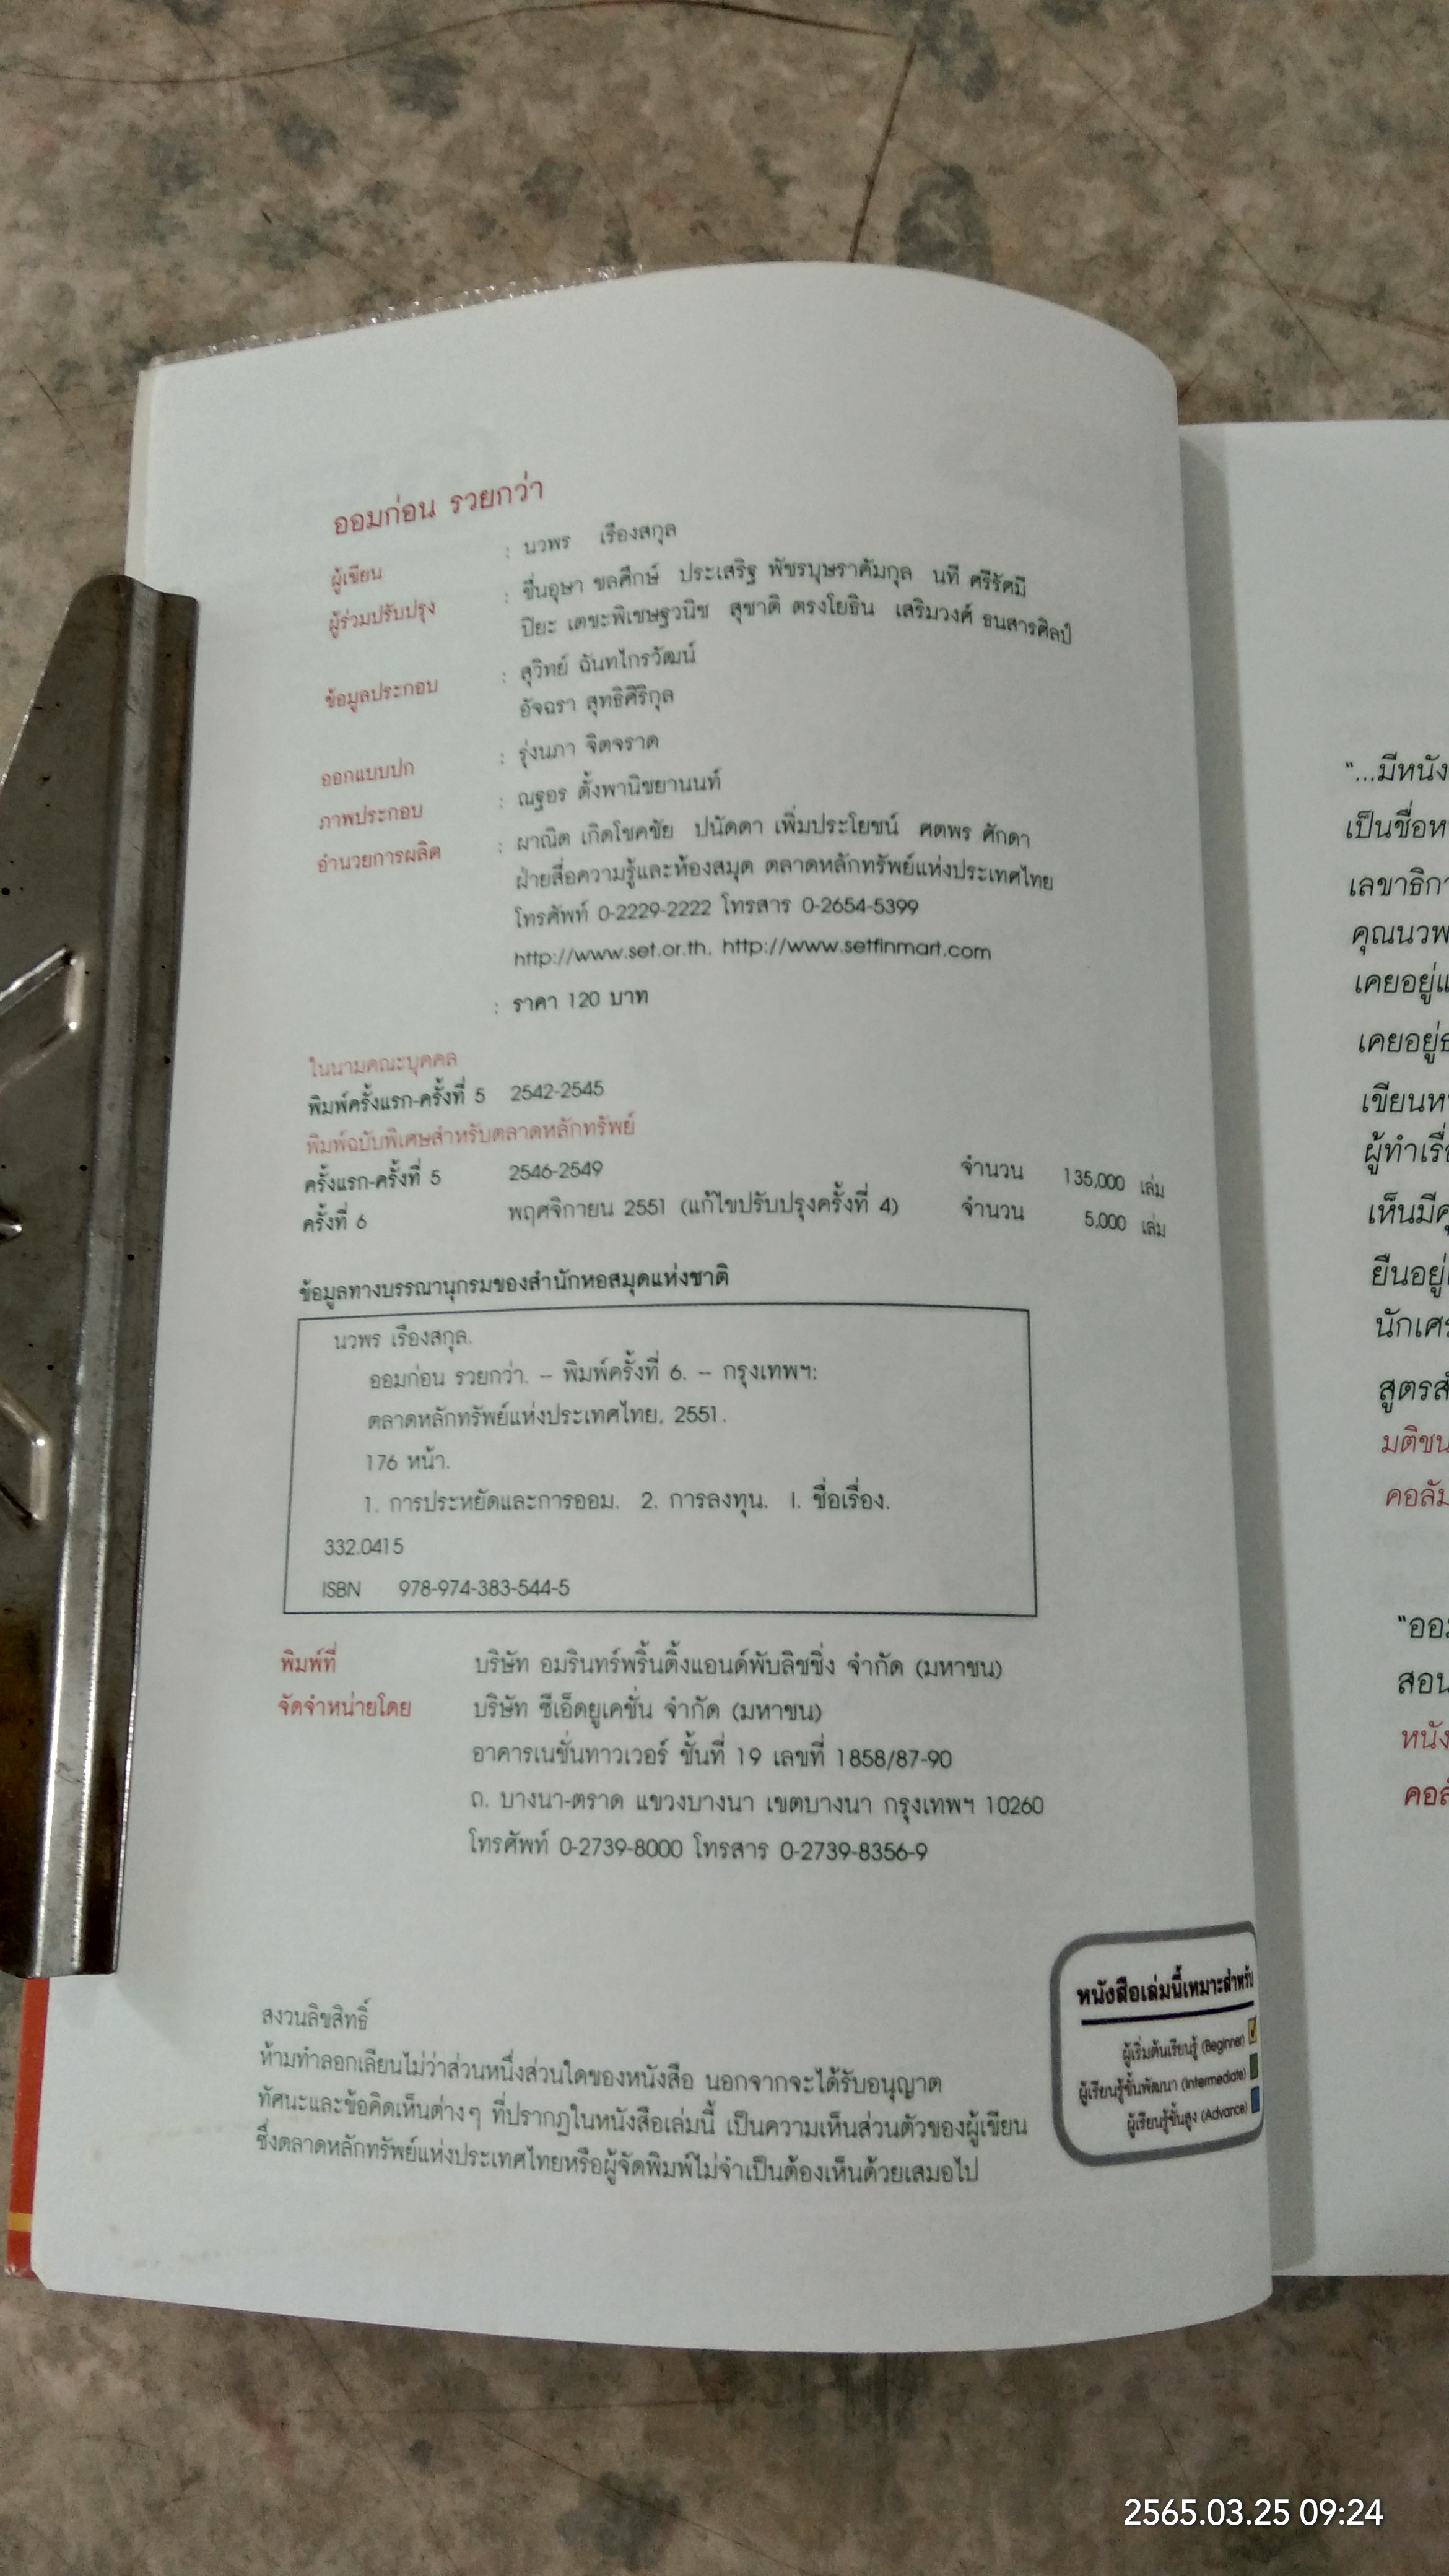 ออมก่อน รวยกว่า
ผู้เขียน : นวพร เรืองสกุล
ผู้ร่วมปรับปรุง : ชื่นอุษา ชลศึกษ์ ประเสริฐ พัชรบุษราคัมกุล นที ศรีรัศมี
ปิยะ เตชะพิเชษฐวนิช สุชาติ ตรงโยธิน เสริมวงศ์ ธนสารศิลป์
ข้อมูลประกอบ : สุวิทย์ ฉันทไกรวัฒน์
อัจฉรา สุทธิศิริกุล
ออกแบบปก : รุ่งนภา จิตจราด
ภาพประกอบ : ณฐอร ตั้งพานิชยานนท์
อำนวยการผลิต : ผาณิต เกิดโชคชัย ปนัดดา เพิ่มประโยชน์ ศตพร ศักดา
ฝ่ายสื่อความรู้และห้องสมุด ตลาดหลักทรัพย์แห่งประเทศไทย
โทรศัพท์ 0-2229-2222 โทรสาร 0-2654-5399
http://www.set.or.th, http://www.setfinmart.com
: ราคา 120 บาท
ในนามคณะบุคคล
พิมพ์ครั้งแรก-ครั้งที่ 5 2542-2545
พิมพ์ฉบับพิเศษสำหรับตลาดหลักทรัพย์
ครั้งแรก-ครั้งที่ 5 2546-2549 จำนวน 135,000 เล่ม
ครั้งที่ 6 พฤศจิกายน 2551 (แก้ไขปรับปรุงครั้งที่ 4) จำนวน 5,000 เล่ม
ข้อมูลทางบรรณานุกรมของสำนักหอสมุดแห่งชาติ
นวพร เรืองสกุล.
ออมก่อน รวยกว่า. -- พิมพ์ครั้งที่ 6. -- กรุงเทพฯ:
ตลาดหลักทรัพย์แห่งประเทศไทย, 2551.
176 หน้า.
1. การประหยัดและการออม. 2. การลงทุน. I. ชื่อเรื่อง.
332.0415
ISBN 978-974-383-544-5
พิมพ์ที่ บริษัท อมรินทร์พริ้นติ้งแอนด์พับลิชชิ่ง จำกัด (มหาชน)
จัดจำหน่ายโดย บริษัท ซีเอ็ดยูเคชั่น จำกัด (มหาชน)
อาคารเนชั่นทาวเวอร์ ชั้นที่ 19 เลขที่ 1858/87-90
ถ. บางนา-ตราด แขวงบางนา เขตบางนา กรุงเทพฯ 10260
โทรศัพท์ 0-2739-8000 โทรสาร 0-2739-8356-9
สงวนลิขสิทธิ์
ห้ามทำลอกเลียนไม่ว่าส่วนหนึ่งส่วนใดของหนังสือ นอกจากจะได้รับอนุญาต
ทัศนะและข้อคิดเห็นต่างๆ ที่ปรากฏในหนังสือเล่มนี้ เป็นความเห็นส่วนตัวของผู้เขียน
ซึ่งตลาดหลักทรัพย์แห่งประเทศไทยหรือผู้จัดพิมพ์ไม่จำเป็นต้องเห็นด้วยเสมอไป
หนังสือเล่มนี้เหมาะสำหรับ
ผู้เริ่มต้นเรียนรู้ (Beginner)
ผู้เรียนรู้ขั้นพัฒนา (Intermediate)
ผู้เรียนรู้ขั้นสูง (Advance)
"...มีหนัง
เป็นชื่อห
เลขาธิกา
คุณนวพ
เคยอยู่แ
เคยอยู่ธ
เขียนห
ผู้ทำเรื่
เห็นมีคุ
ยืนอยู่
นักเศร
สูตรส
มติชน
คอลัม
"ออม
สอน
หนัง
คอลั
2565.03.25 09:24